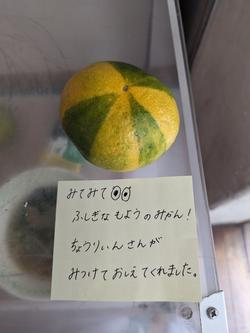 みてみて👀
ふしぎな もようの みかん!
ちょうりいん さんが
みつけて おしえてくれました。